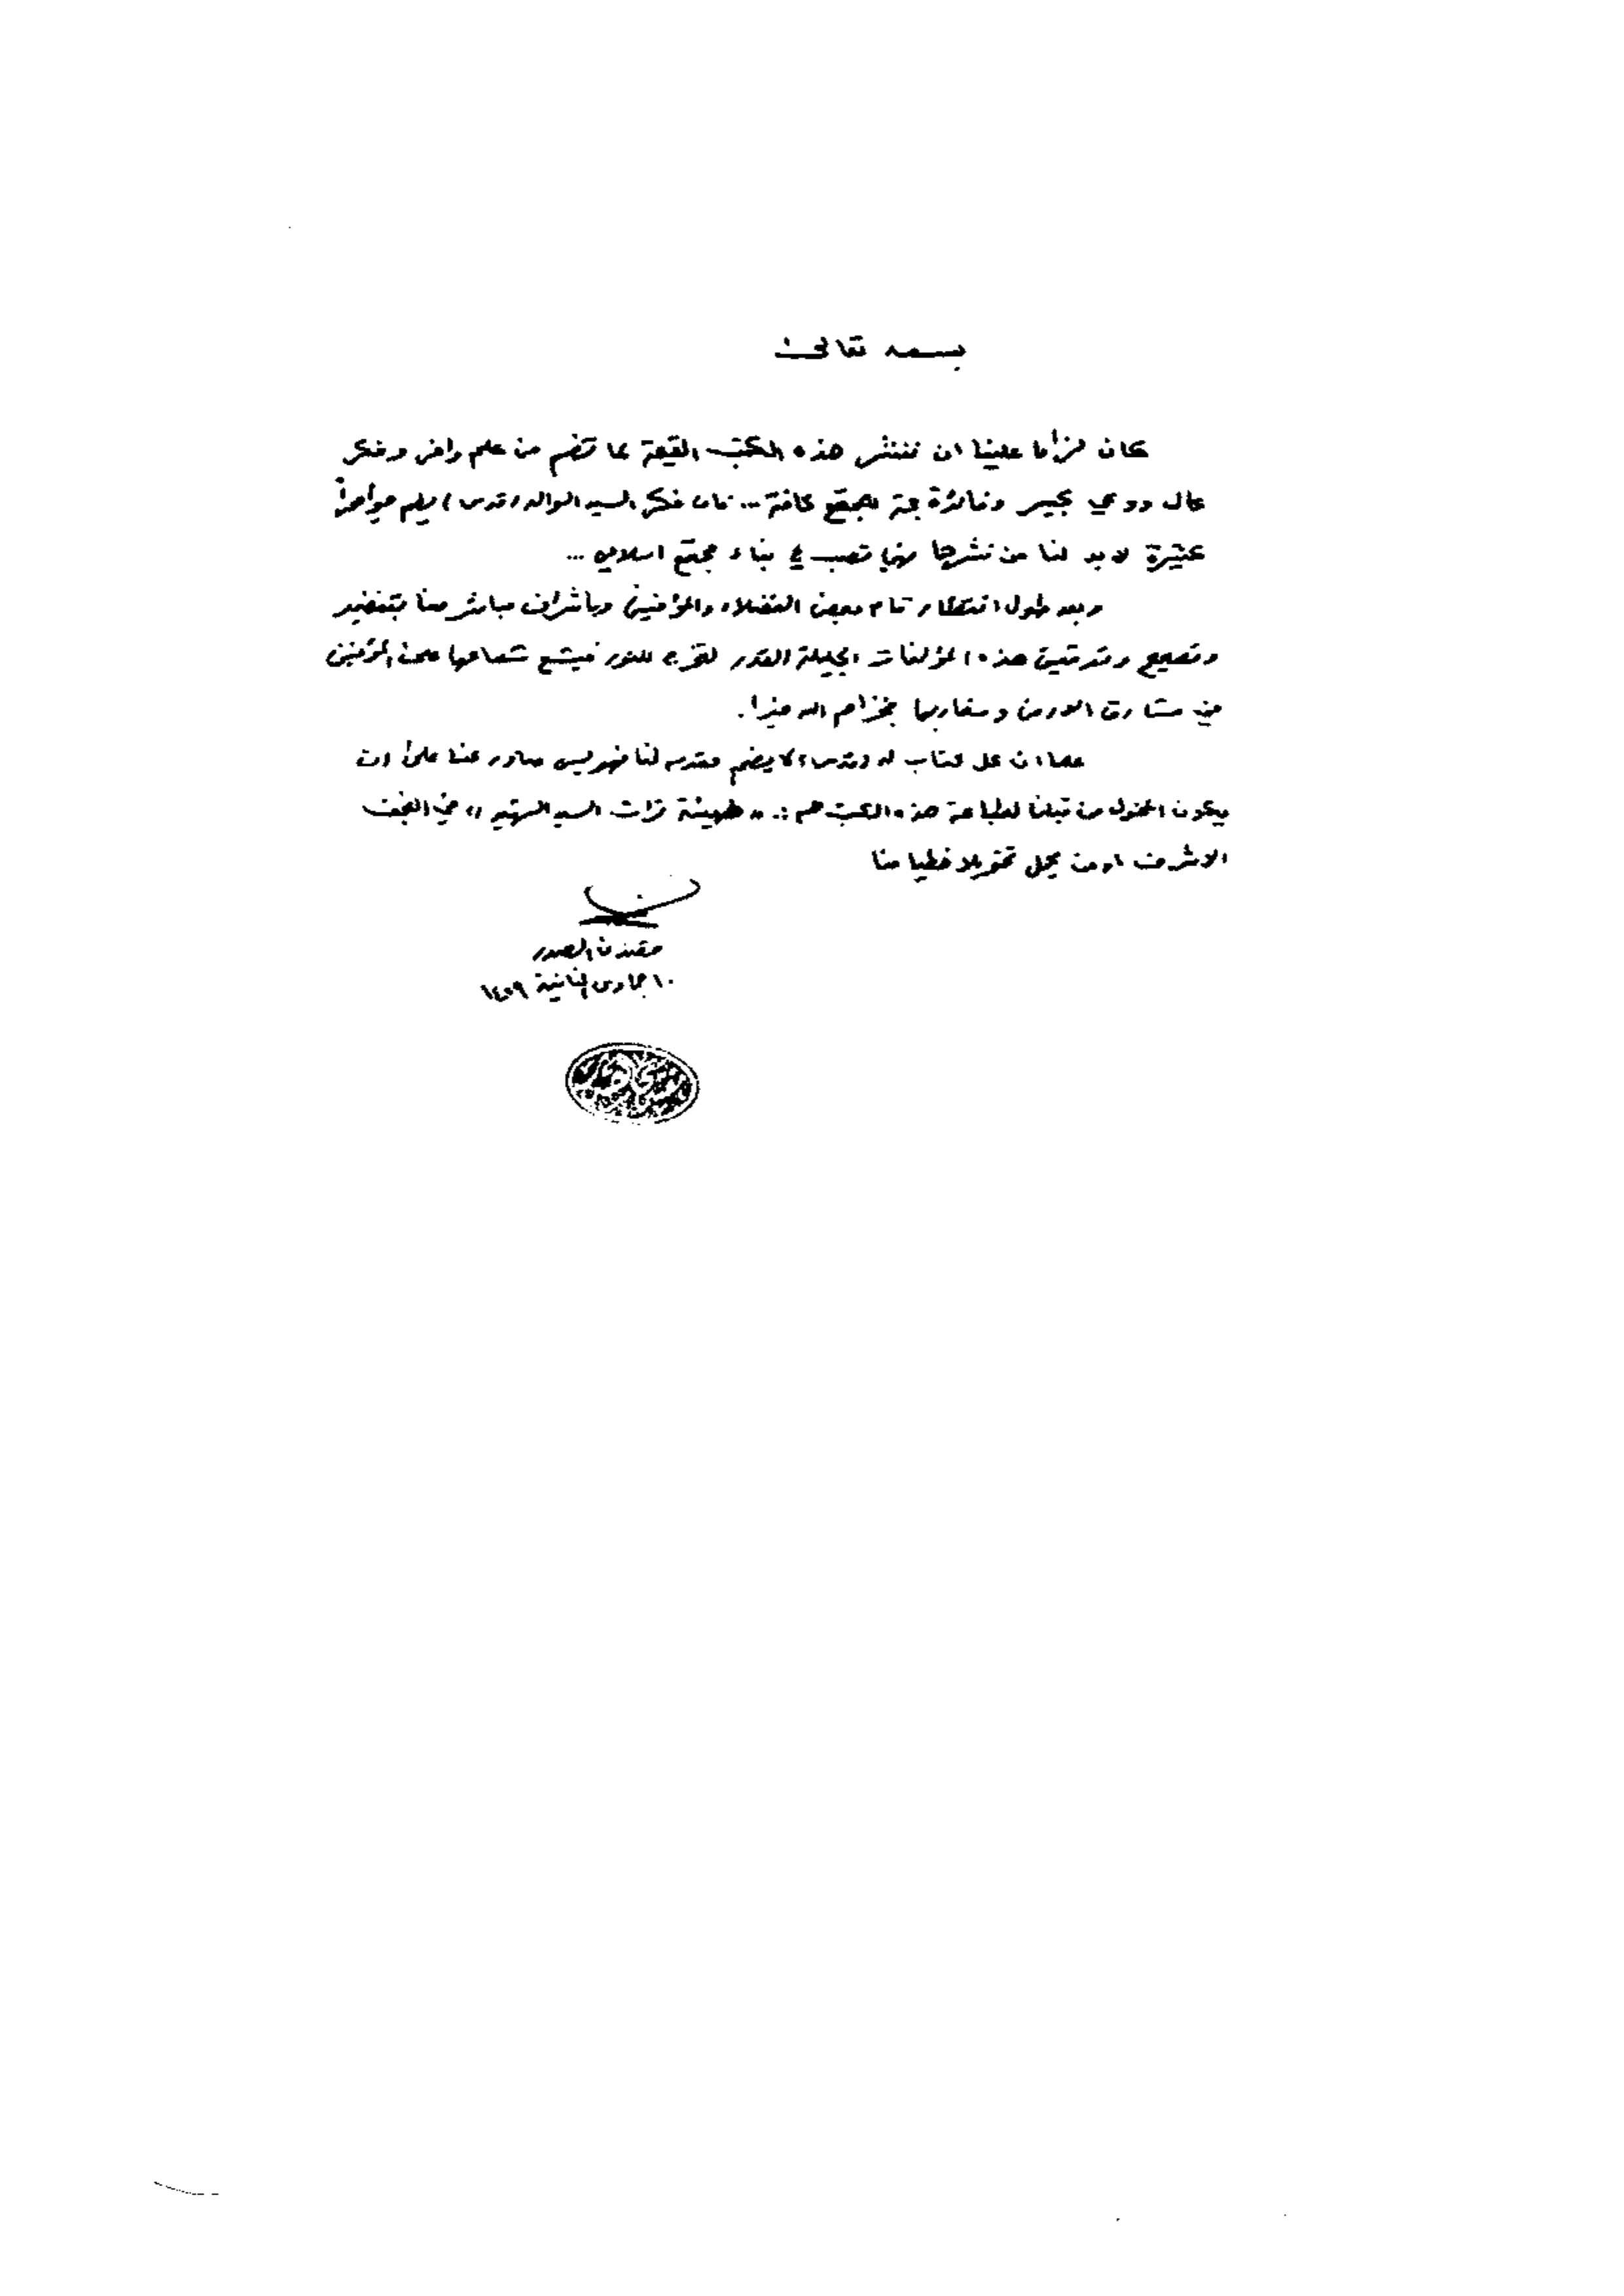 بسمه تعالى
كان لزاما علينا ان ننشر هذه الكتب القيمة بما تضم من علم وافر وفكر
عال ووعي كبير وفائدة جمة للمجتمع كافة... فان فكر السيد الوالد (قدس) يلم
كثيرة لا بد لنا من نشرها فهي تصب في بناء مجتمع اسلامي ...
وبعد طول انتظار قام بعض الفضلاء والمؤمنين وباشراف مباشر منا بتنضيد
وتصحيح وتدقيق هذه المؤلفات الجليلة القدر لتخرج للنور فيشع شعاعها على المؤمنين
في مشارق الارض ومغاربها فجزاهم الله خيرا.
علما ان كل كتاب له (قدس) لا يضم مقدمه لنا فهو ليس صادر عنا على ان
يكون المخول من قبلنا لطباعة هذه الكتب هم: « هيئة تراث السيد الشهيد » في النجف
الاشرف او من يحمل تخويلا خطيا منا
مقتدى الصدر
١٠ جمادى الثانية ١٤٢٩